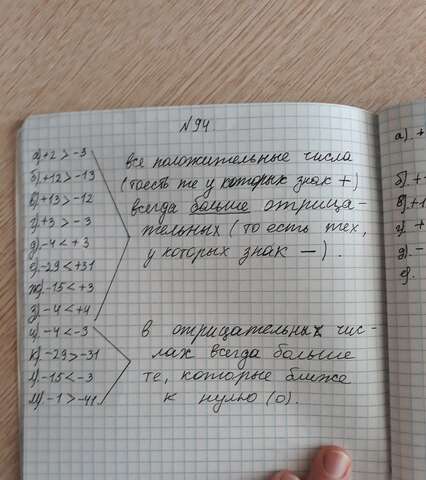 №94.
а). +2 > -3
б). +12 > -13
в). +13 > -12
г). +3 > -3
д). -4 < +3
е). -29 < +31
ж). -15 < +3
з). -4 < +4
и). -4 < -3
к). -29 > -31
л). -15 < -3
м). -1 > -41
все положительные числа
(тоесть те у которых знак +)
всегда больше отрица-
тельных (то есть тех,
у которых знак –).
в отрицательных чис-
лах всегда больше
те, которые ближе
к нулю (0).
а). +
б). +
в). +1
г). +
д). -
е).